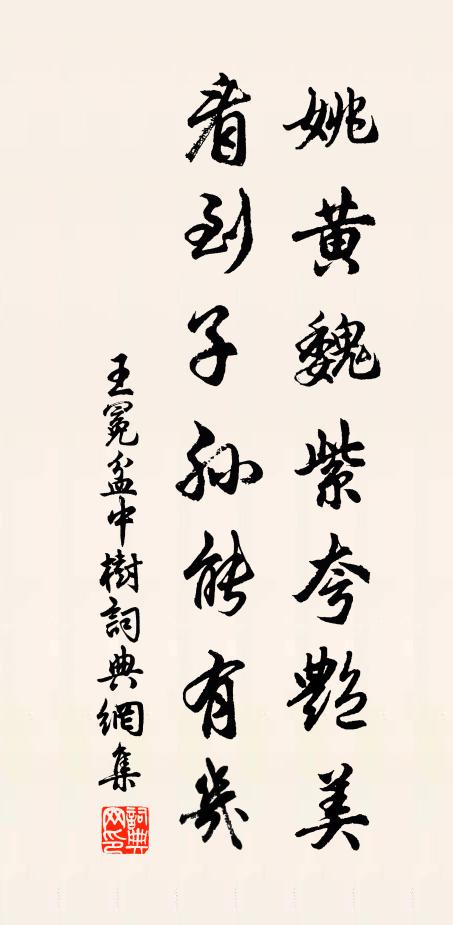 姚黄魏紫夸艷美
看到子孫能有幾
王冕盆中樹詞典網集
詞典網印